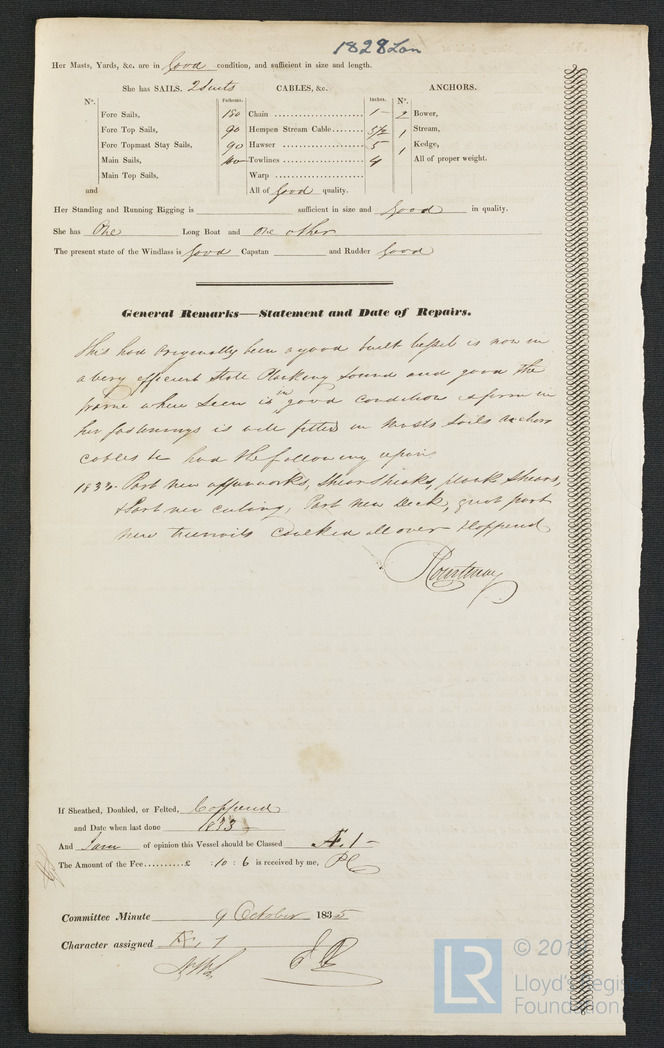 1828 Lon
Her Masts, Yards, &c. are in Good condition, and sufficient in size and length.
She has SAILS. 2 Suits CABLES, &c. ANCHORS.
Nº. Fathoms. Inches. Nº.
Fore Sails, 150 Chain 1 2 Bower,
Fore Top Sails, 90 Hempen Stream Cable 5½ 1 Stream,
Fore Topmast Stay Sails, 90 Hawser 5 1 Kedge,
Main Sails, Towlines 4 All of proper weight.
Main Top Sails, Warp
and All of Good quality.
Her Standing and Running Rigging is sufficient in size and Good in quality.
She has One Long Boat and One other
The present state of the Windlass is Good Capstan and Rudder Good
General Remarks—Statement and Date of Repairs.
This had Originally been a good built vessel is now in
a very efficient State Planking Sound and good the
frame where seen is in good condition is firm in
her fastenings is well fitted in Masts Sails Anchors
Cables &c had the following repairs
1833. Part new upperworks, Shear Streaks, plank Shears,
& Part new ceiling, Part new Deck, great part
new treenails Caulked all over & Coppered
If Sheathed, Doubled, or Felted, Coppered
and Date when last done 1833
And I am of opinion this Vessel should be Classed Æ. 1
The Amount of the Fee..........£ : 10 : 6 is received by me, PC
Committee Minute 9 October 1835
Character assigned Æ. 1
LR
Lloyd's Regis
Foundation